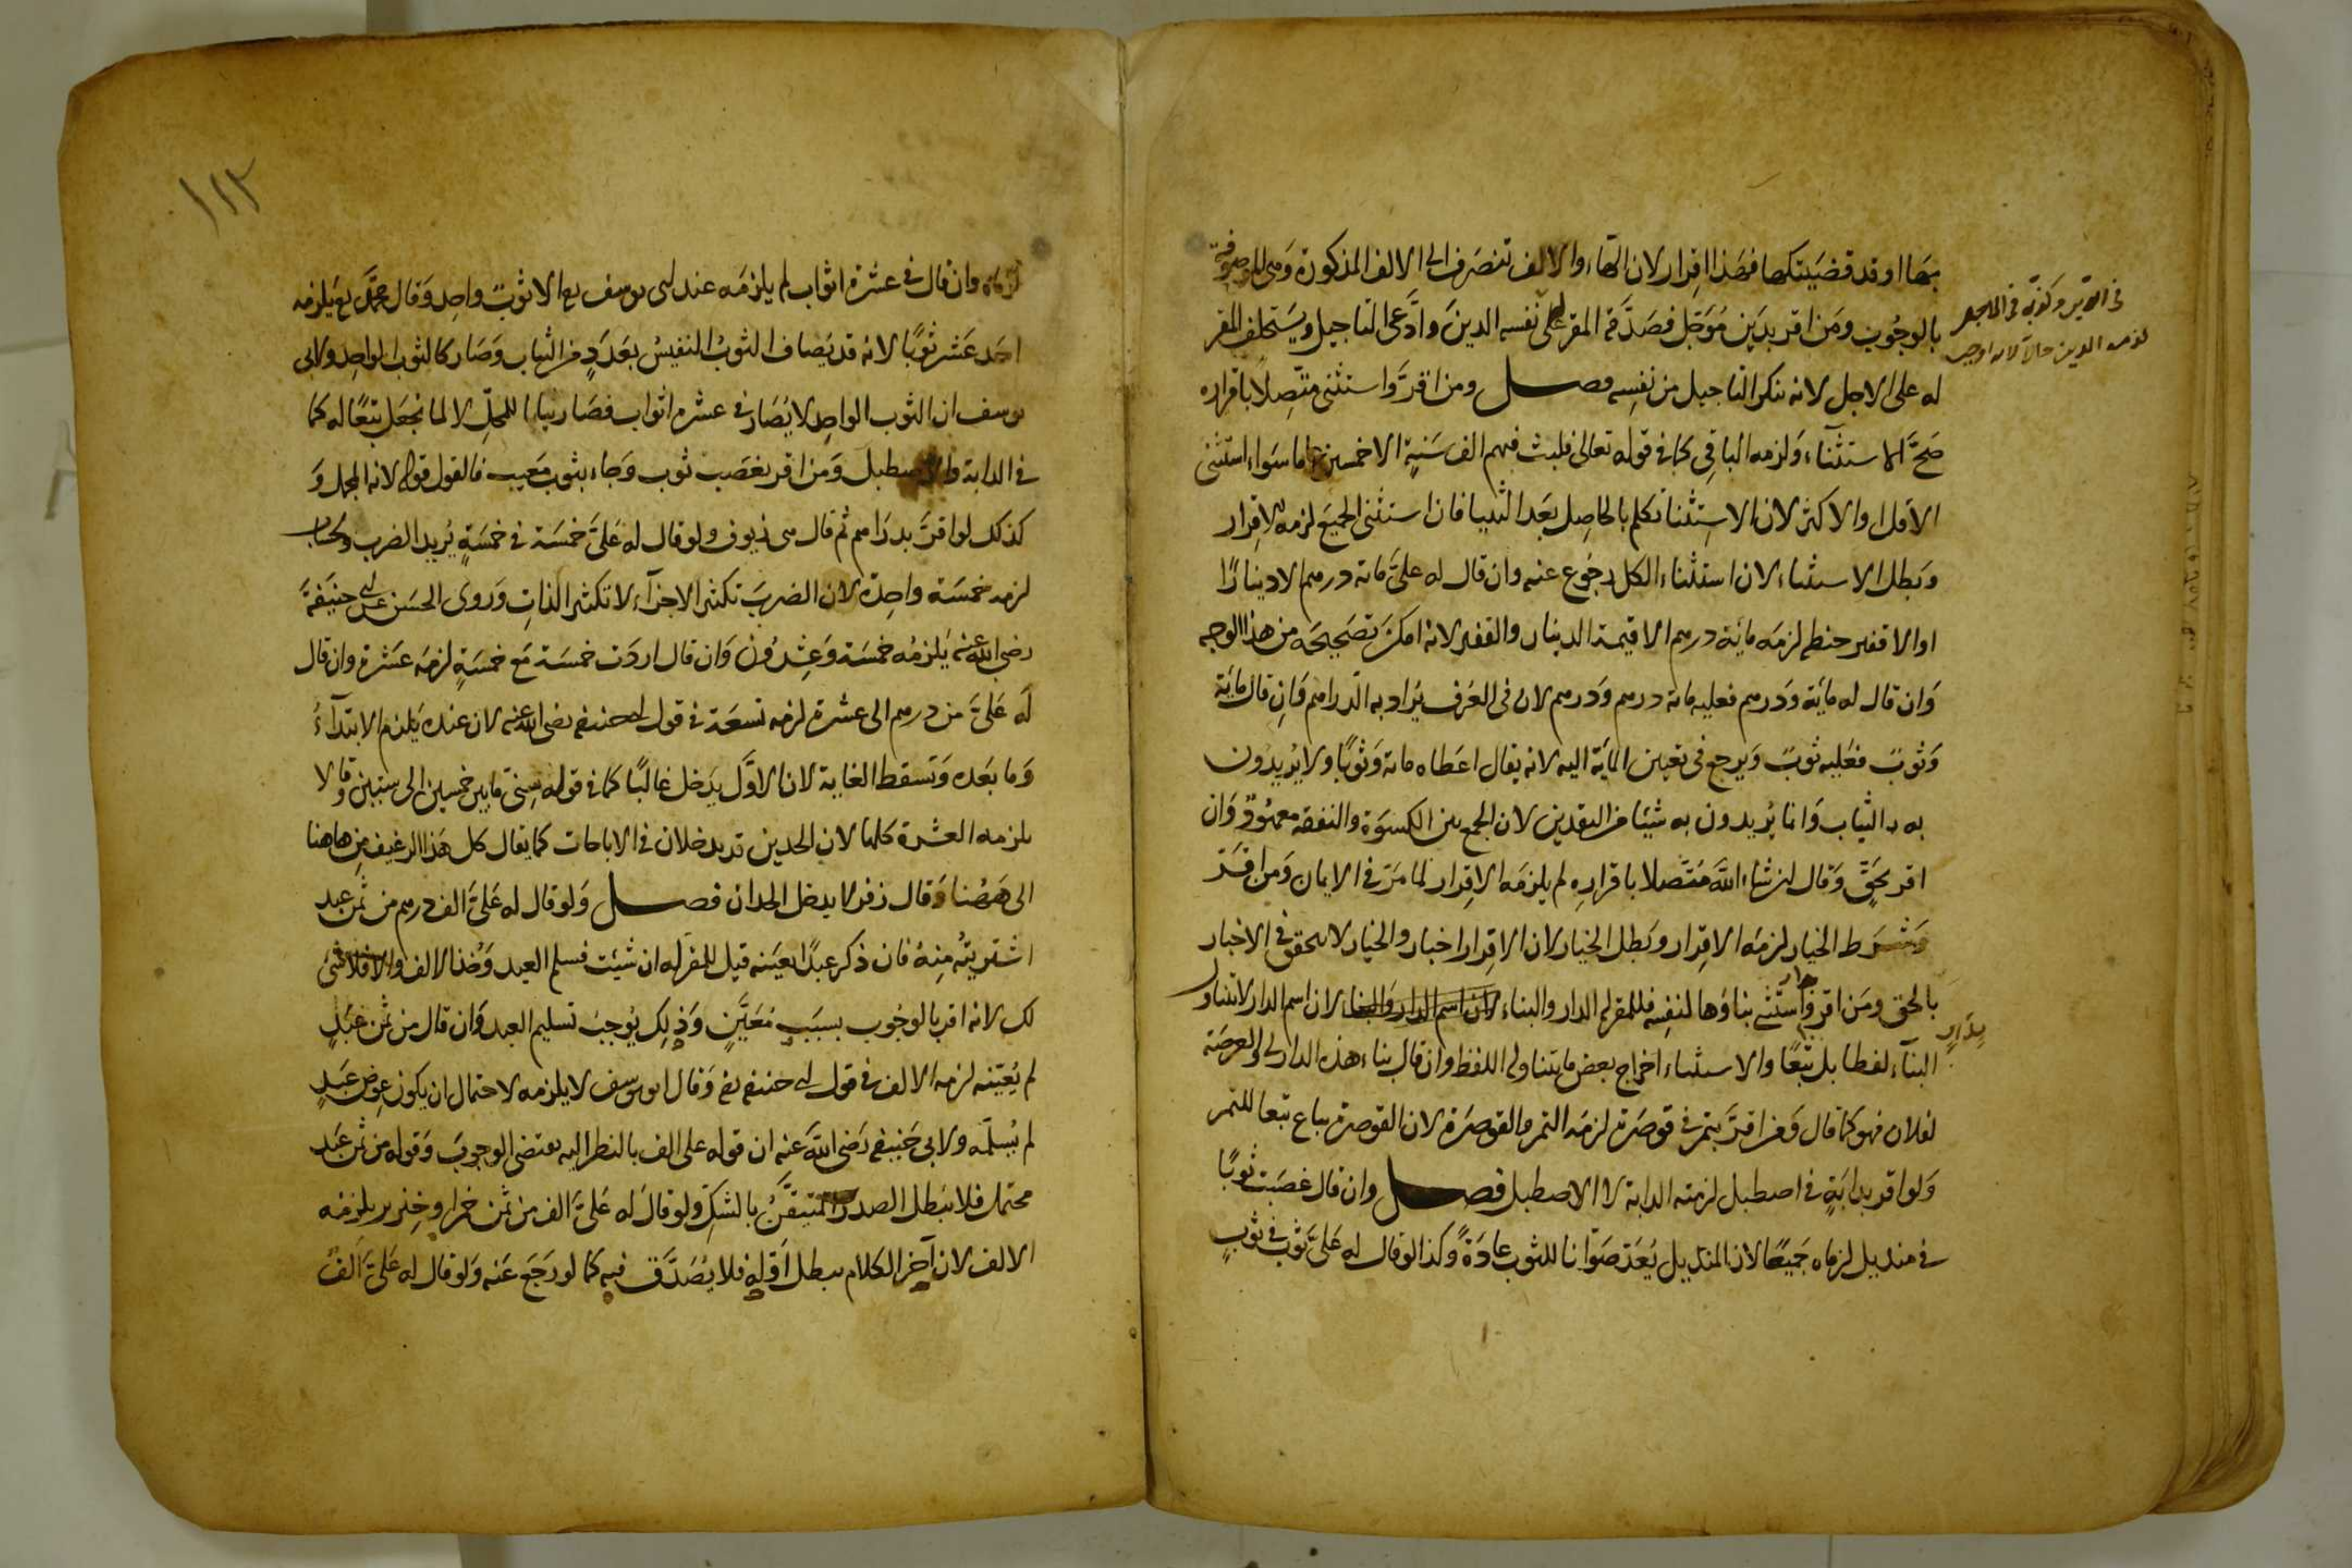 بها او قد قضيتكها فهذا اقرار لان الهاء والالف تنصرف الى الالف المذكورة وهي الموصوفة
بالوجوب ومن اقر بدين مؤجل فصدقه المقر له على نفسه الدين وادعى التاجيل ويستحلف المقر
له على الاجل لانه منكر التاجيل من نفسه فصل ومن اقر واستثنى متصلا باقراره
صح الاستثناء ولزمه الباقي كما في قوله تعالى فلبث فيهم الف سنة الا خمسين عاما سواء استثنى
الاقل او الاكثر لان الاستثنا تكلم بالحاصل بعد الثنيا فان استثنى الجميع لزمه الاقرار
وبطل الاستثناء لان استثناء الكل رجوع عنه وان قال له علي مائة درهم الا دينارا
او الا قفير حنطه لزمه مائة درهم الا قيمة الدينار والقفير لانه امكن تصحيحه من هذا الوجه
وان قال له مائة ودرهم فعليه مائة درهم ودرهم لان في العرف يراد به الدراهم وان قال مائة
وثوب فعليه ثوب ويرجع في تعيين المائة اليه لانه يقال اعطاه مائة وثوبا ولا يريدون
به الثياب وانما يريدون به شيئا من النقدين لان الجمع بين الكسوة والنفقة معهود وان
اقر بحق وقال ان شاء الله متصلا باقراره لم يلزمه الاقرار لما مر في الايمان ومن اقر
وشرط الخيار لزمه الاقرار وبطل الخيار لان الاقرار اخبار والخيار لا يتحقق في الاخبار
بالحق ومن اقر بدار واستثنى بناؤها لنفسه فللمقر له الدار والبناء لان اسم الدار والبناء لان اسم الدار لا يتناول
البناء لفظا بل تبعا والاستثناء اخراج بعض ما يتناوله اللفظ وان قال بناء هذه الدار لي والعرصة
لفلان فهو كما قال ومن اقر بتمر في قوصرة لزمه التمر والقوصرة لان القوصرة يباع تبعا للتمر
ولو اقر بدابة في اصطبل لزمته الدابة لا الاصطبل فصل وان قال غصبت ثوبا
في منديل لزماه جميعا لان المنديل يعد صوانا للثوب عادة وكذا لو قال له علي ثوب في ثوب
في الدين وكذبه في التاجيل
لزمه الدين حالا لانه اوجب
بدار
١١٢
لزماه وان قال في عشرة اثواب لم يلزمه عند ابي يوسف رح الا ثوب واحد وقال محمد رح يلزمه
احد عشر ثوبا لانه قد يصان الثوب النفيس بعدد من الثياب وصار كالثوب الواحد ولابي
يوسف ان الثوب الواحد لا يصان في عشرة اثواب فصار بيانا للمحل لا لما نجعل تبعا له كما
في الدابة والاصطبل ومن اقر بغصب ثوب وجاء بثوب معيب فالقول قوله لانه المجمل و
كذلك لو اقر بدراهم ثم قال هي زيوف ولو قال له علي خمسة في خمسة يريد الضرب والحساب
لزمه خمسة واحدة لان الضرب تكثر الاجزاء لا تكثر الذات وروى الحسن عن ابي حنيفة
رضي الله عنه يلزمه خمسة وعشرون وان قال اردت خمسة مع خمسة لزمه عشرة وان قال
له علي من درهم الى عشرة لزمه تسعة في قول ابي حنيفة رضي الله عنه لان عنده يلزم الابتداء
وما بعده وتسقط الغاية لان الاول يدخل غالبا كما في قوله سني ما بين خمسين الى ستين وقالا
يلزمه العشرة كلها لان الحدين قد يدخلان في الاباحات كما يقال كل هذا الرغيف من هاهنا
الى ههنا وقال زفر لا يدخل الحدان فصل ولو قال له علي الف درهم من ثمن عبد
اشتريته منه فان ذكر عبدا بعينه قيل للمقر له ان شئت فسلم العبد وخذ الالف والا فلا شئ
لك لانه اقر بالوجوب بسبب معين وذلك يوجب تسليم العبد وان قال من ثمن عبد
لم يعينه لزمه الالف في قول ابي حنيفه رض وقال ابو يوسف لا يلزمه لاحتمال ان يكون عوض عبد
لم يسلمه ولابي حنيفه رضي الله عنه ان قوله على الف بالنظر اليه يقتضي الوجوب وقوله من ثمن عبد
محتمل فلا يبطل الصدر المتيقن بالشك ولو قال له علي الف من ثمن خمر او خنزير يلزمه
الالف لان آخر الكلام يبطل اوله فلا يصدق فيه كما لو رجع عنه ولو قال له علي الف